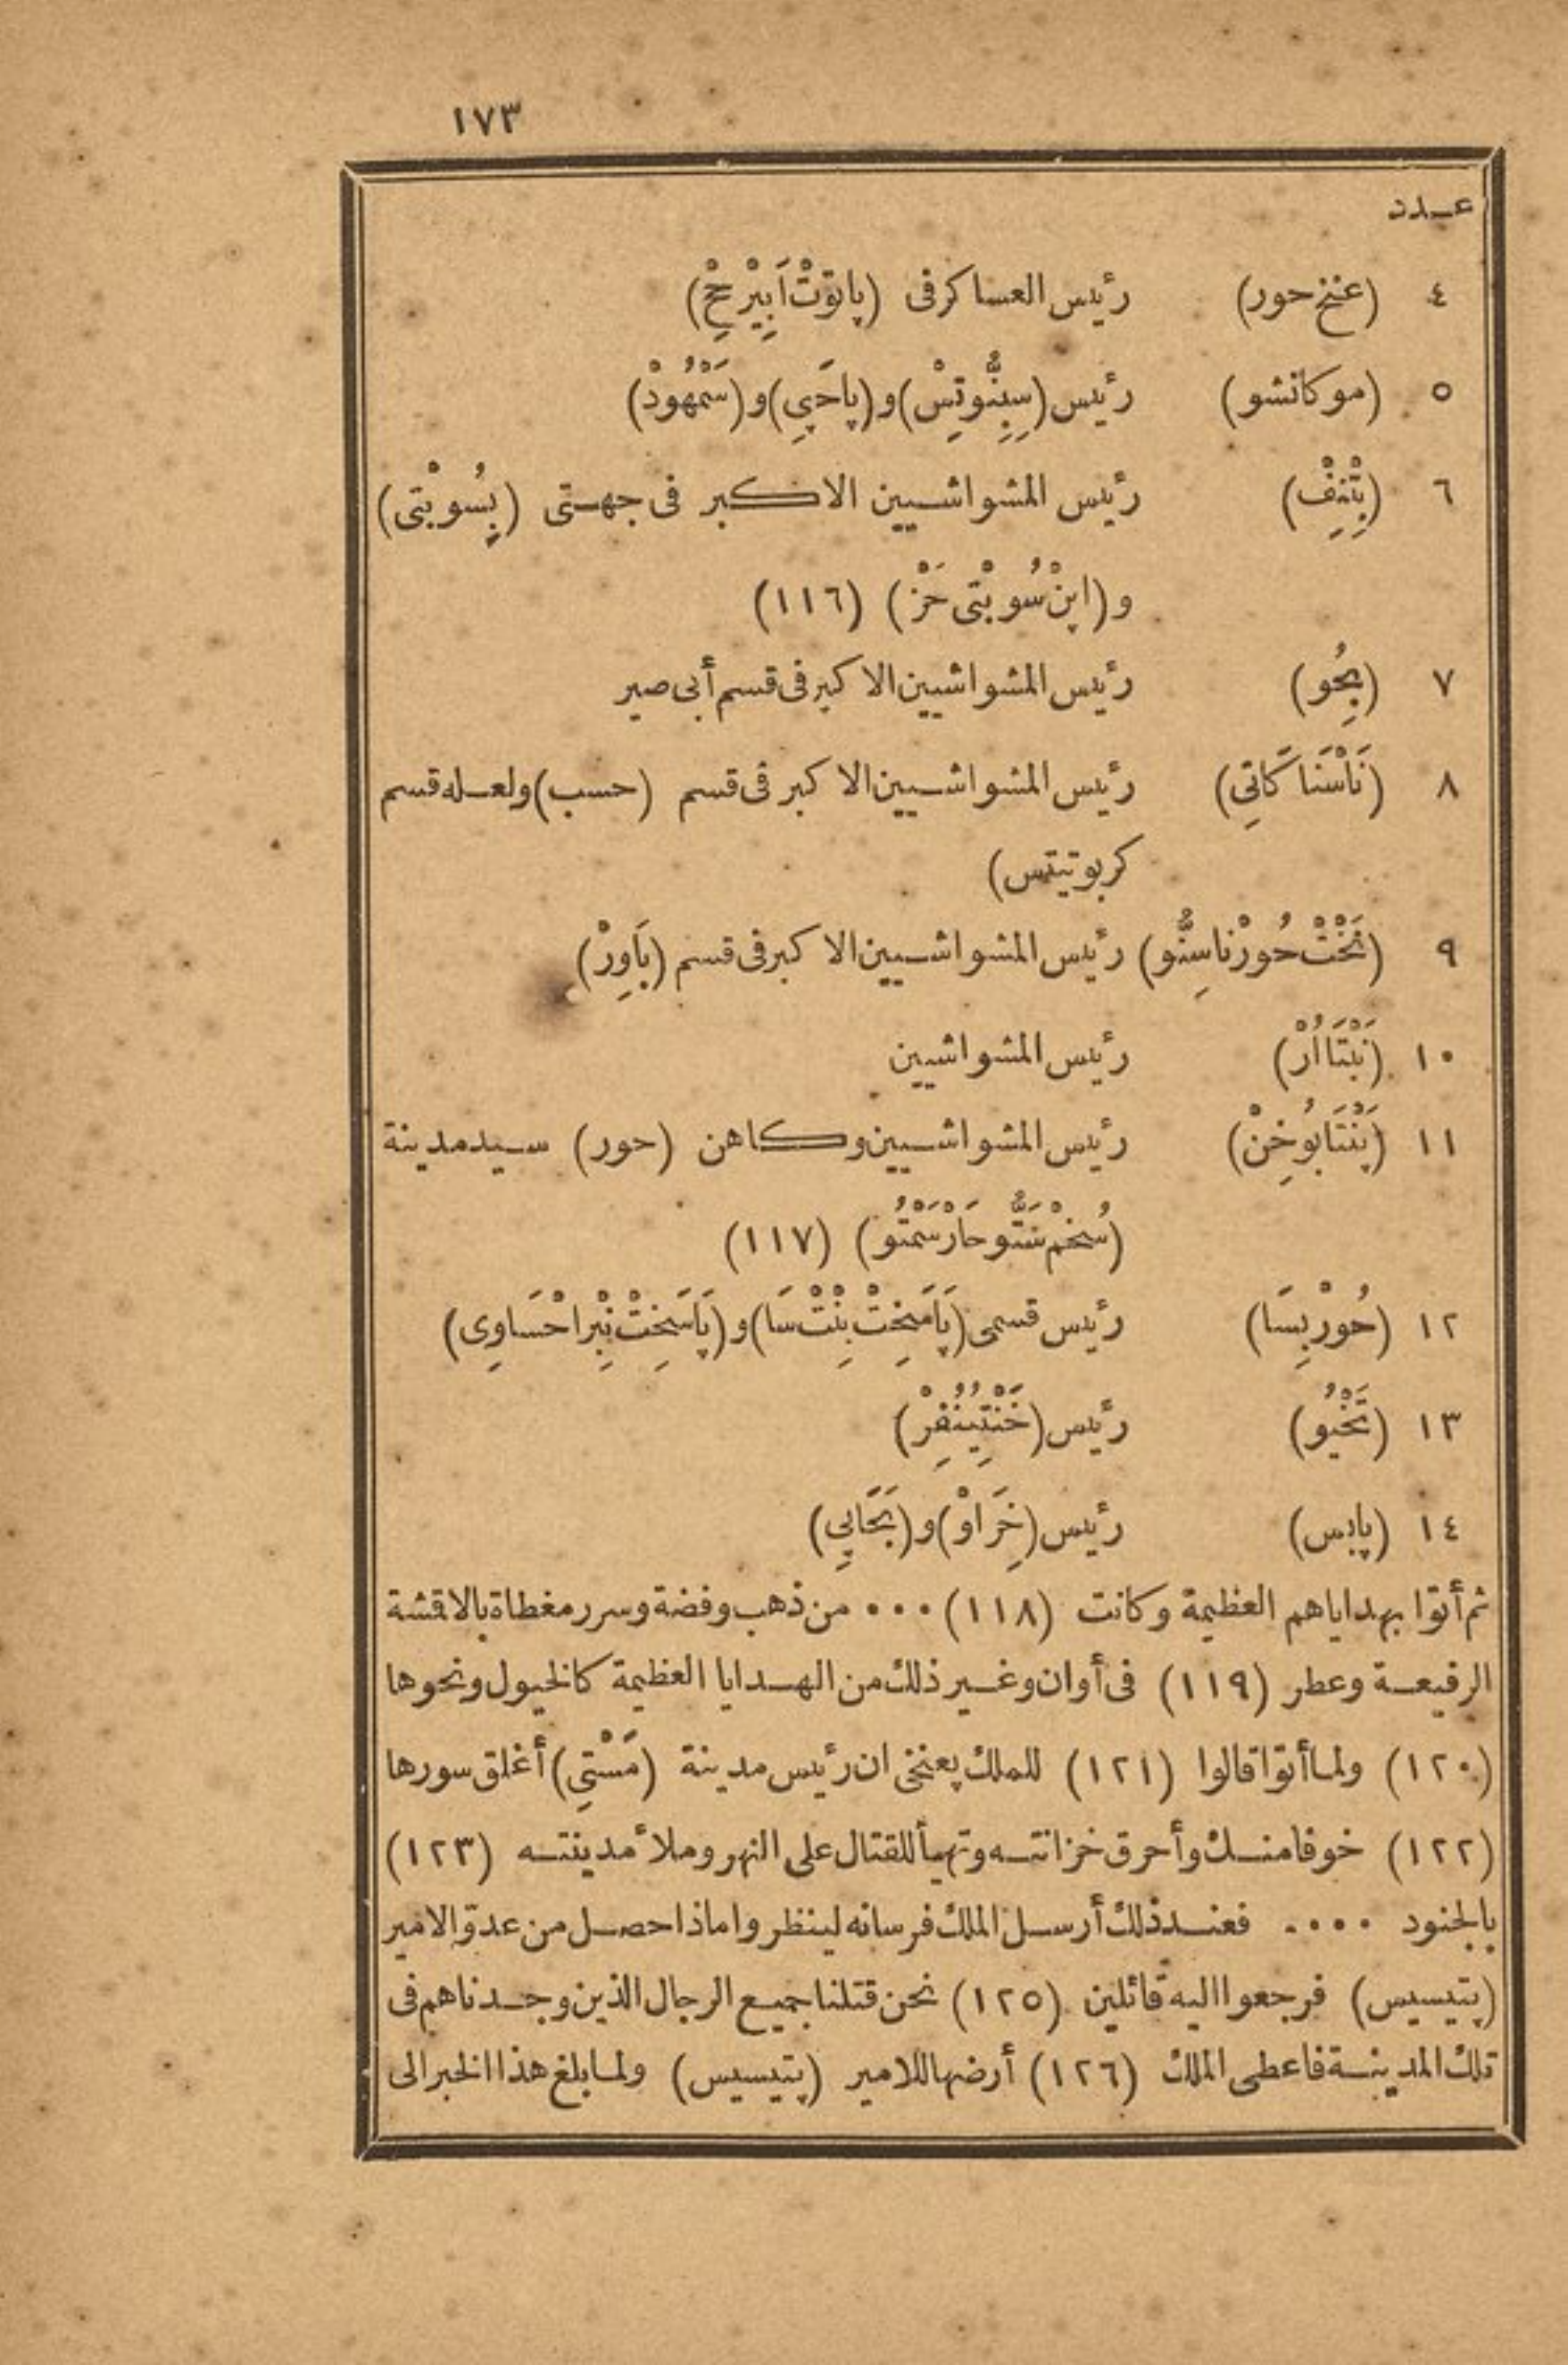 ١٧٣
عدد
٤ (عنخ حور) رئيس العساكر فى (پاتوّتْ اَپِيْرْحِحْ)
٥ (موكانشو) رئيس (سِبِنُّوتِسْ) و (پاحَپِى) و (سَمْهُودْ)
٦ (بِتْنِفْ) رئيس المشواشيين الاكبر فى جهتى (پِسُوبْتى)
و (اپنْ سُوبْتى حَزْ) (١١٦)
٧ (بِحُو) رئيس المشواشيين الاكبر فى قسم أبى صير
٨ (نَاسْنَاكَاتِى) رئيس المشواشيين الاكبر فى قسم (حسب) ولعله قسم
كربوتيتس)
٩ (نَخْتْ حُورْناسِنُّو) رئيس المشواشيين الاكبر فى قسم (بَاوِرْ)
١٠ (نَبْتَااُرْ) رئيس المشواشيين
١١ (پَنْتَابُوخِنْ) رئيس المشواشيين وكاهن (حور) سيد مدينة
(سُخمْ نتَّو حَارْسَمْتُو) (١١٧)
١٢ (حُورْبِسَا) رئيس قسمى (پَامَخِتْ بِنْتْ سَا) و (پَاسَخِتْ نِبْرَاحْسَاوِى)
١٣ (تَخْيُو) رئيس (خَنْتِينُفِرْ)
١٤ (پابس) رئيس (خِرَاوْ) و (بَحَاپِى)
ثم أتوا بهداياهم العظيمة وكانت (١١٨) ٠٠٠ من ذهب وفضة وسرر مغطاة بالاقشة
الرفيعة وعطر (١١٩) فى أوان وغير ذلك من الهدايا العظيمة كالخيول ونحوها
(١٢٠) ولما أتوا قالوا (١٢١) للملك پعنخى ان رئيس مدينة (مَسْتِى) أغلق سورها
(١٢٢) خوفا منك وأحرق خزانته وتهيأ للقتال على النهر وملأ مدينته (١٢٣)
بالجنود ٠٠٠٠ فعند ذلك أرسل الملك فرسانه لينظروا ماذا حصل من عدوّ الامير
(پتيسيس) فرجعوا اليه قائلين (١٢٥) نحن قتلنا جميع الرجال الذين وجدناهم فى
تلك المدينة فاعطى الملك (١٢٦) أرضها للامير (پتيسيس) ولما بلغ هذا الخبر الى